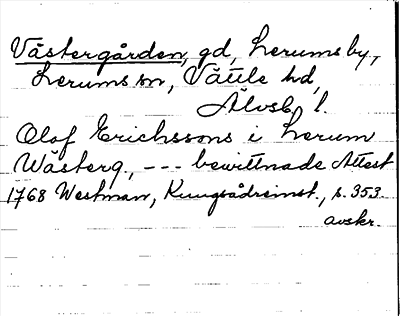 Västergården, gd, Lerums by,
Lerums sn, Vättle hd,
Älvsb. l.
Olof Erichssons i Lerum
Wästerg., --- bewittnade Attest
1768 Westman, Kungsådreinst., s. 353.
avskr.